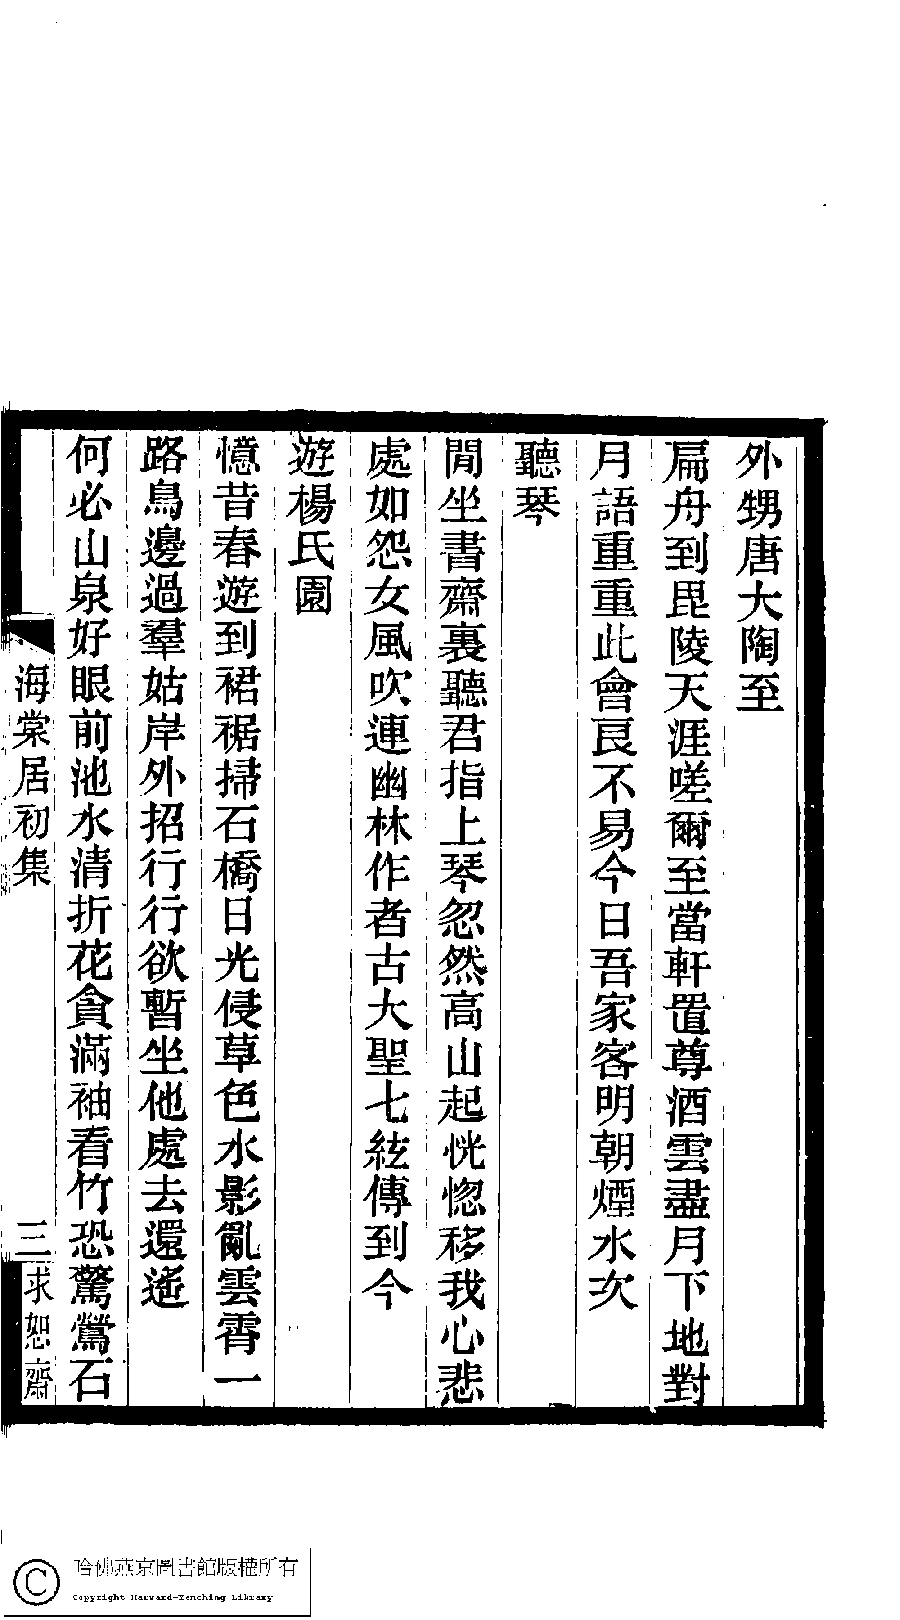 外甥唐大陶至
扁舟到毘陵天涯嗟爾至當軒置尊酒雲盡月下地對
月語重重此會良不易今日吾家客明朝煙水次
聽琴
閒坐書齋裏聽君指上琴忽然高山起恍惚移我心悲
處如怨女風吹連幽林作者古大聖七絃傳到今
遊楊氏園
憶昔春遊到裙裾掃石橋日光侵草色水影亂雲霄一
路鳥邊過羣姑岸外招行行欲暫坐他處去還遙
何必山泉好眼前池水清折花貪滿袖看竹恐驚鶯石
海棠居初集
三
求恕齋
哈佛燕京圖書館版權所有
Copyright Harvard-Yenching Library